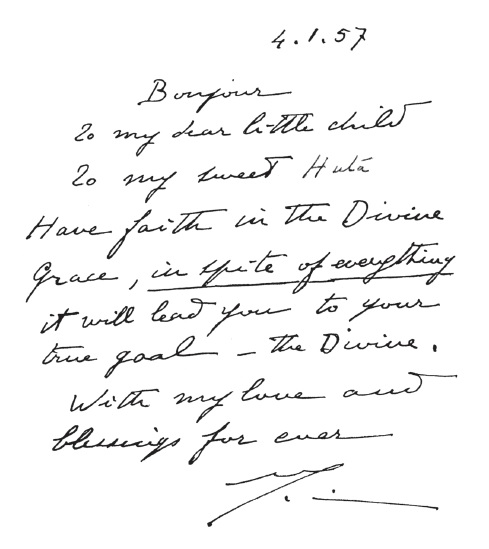 4.1.57
Bonjour
To my dear little child
To my sweet Huta
Have faith in the Divine
Grace, in spite of everything
it will lead you to your
true goal – the Divine.
With my love and
blessings for ever